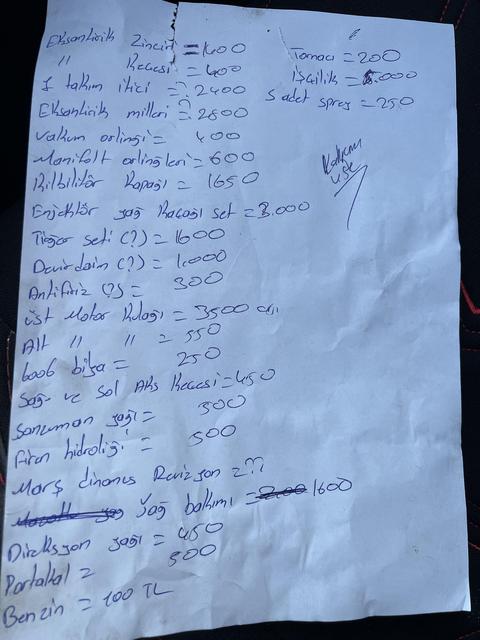 Eksantirik Zinciri = 1600
" Kecesi = 400
1 takım itici = ? 2400
Eksantirik milleri ? 2800
Vakum orlingi = 400
Manifolt orlingleri = 600
Kilbilitör Kapağı = 1650
Enjektör yağ Kacağı set = 3.000
Tiğer seti (?) = 1600
Devirdaim (?) = 1.000
Antifiriz (?) = 300
üst Motor Kulağı = 3500
Alt " " = 550
6006 bilya = 250
Sağ ve Sol Aks Kecesi = 450
Sanzuman yağı = 300
Firen hidroliği = 500
Marş dinamus Revizyon = ??
Yağ bakımı = 1600
Direksyon yağı = 450
Portakal = 500
Benzin = 100 TL
Tornacı = 200
İşcilik = 8.000
5 adet sprey = 250